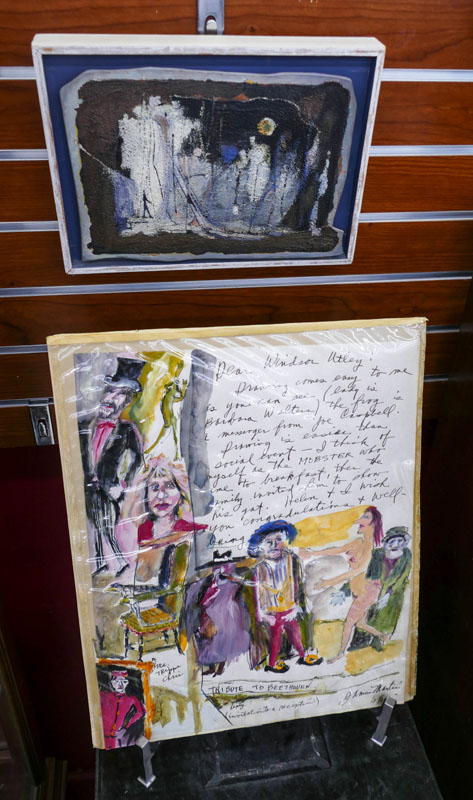 Dear Windsor Utley!
Drawing comes easy to me
as you can see, (Lady is
Barbara Walters) the frog is
a messenger from Joe Campbell.
Drawing is easier than
social event — I think of
myself as the MOBSTER who
came to breakfast, then the
family invited him to show
his gat. Helen & I wish
you congradulations & well-
being
TRIBUTE TO BEETHOVEN
by